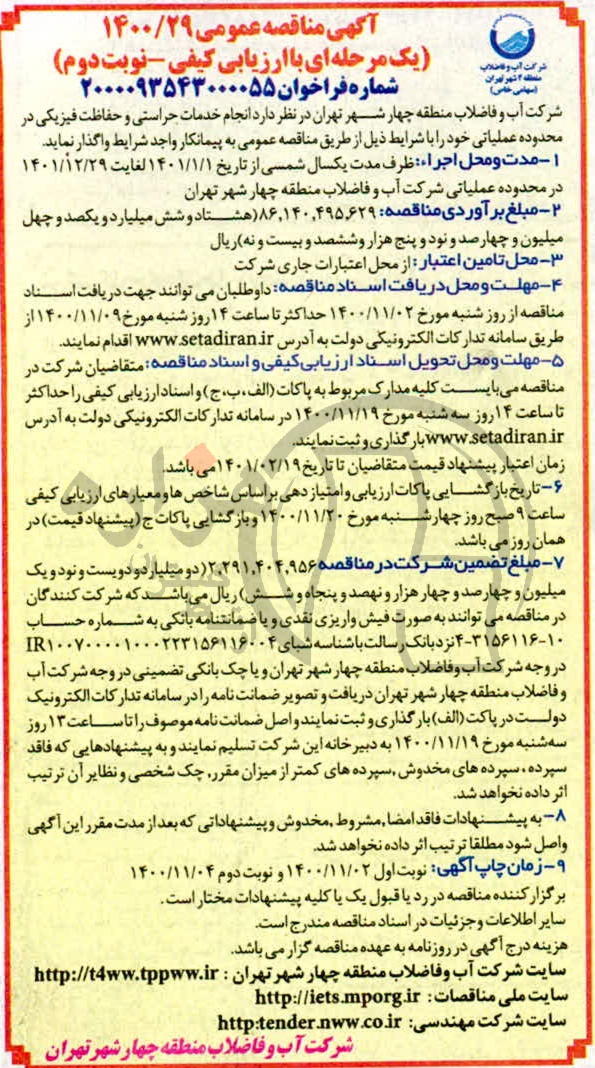 آگهی مناقصه عمومی ۱۴۰۰/۲۹
(یک مرحله‌ای با ارزیابی کیفی – نوبت دوم)
شماره فراخوان ۲۰۰۰۰۹۳۵۴۳۰۰۰۰۵۵
شرکت آب و فاضلاب
منطقه ۴ شهر تهران
(سهامی خاص)
شرکت آب و فاضلاب منطقه چهار شهر تهران در نظر دارد انجام خدمات حراستی و حفاظت فیزیکی در
محدوده عملیاتی خود را با شرایط ذیل از طریق مناقصه عمومی به پیمانکار واجد شرایط واگذار نماید.
۱- مدت و محل اجراء: ظرف مدت یکسال شمسی از تاریخ ۱۴۰۱/۱/۱ لغایت ۱۴۰۱/۱۲/۲۹
در محدوده عملیاتی شرکت آب و فاضلاب منطقه چهار شهر تهران
۲- مبلغ برآوردی مناقصه: ۸۶,۱۴۰,۴۹۵,۶۲۹ (هشتاد و شش میلیارد و یکصد و چهل
میلیون و چهارصد و نود و پنج هزار و ششصد و بیست و نه) ریال
۳- محل تامین اعتبار: از محل اعتبارات جاری شرکت
۴- مهلت و محل دریافت اسناد مناقصه: داوطلبان می توانند جهت دریافت اسناد
مناقصه از روز شنبه مورخ ۱۴۰۰/۱۱/۰۲ حداکثر تا ساعت ۱۴ روز شنبه مورخ ۱۴۰۰/۱۱/۰۹ از
طریق سامانه تدارکات الکترونیکی دولت به آدرس www.setadiran.ir اقدام نمایند.
۵- مهلت و محل تحویل اسناد ارزیابی کیفی و اسناد مناقصه: متقاضیان شرکت در
مناقصه می بایست کلیه مدارک مربوط به پاکات (الف، ب، ج) و اسناد ارزیابی کیفی را حداکثر
تا ساعت ۱۴ روز سه شنبه مورخ ۱۴۰۰/۱۱/۱۹ در سامانه تدارکات الکترونیکی دولت به آدرس
www.setadiran.ir بارگذاری و ثبت نمایند.
زمان اعتبار پیشنهاد قیمت متقاضیان تا تاریخ ۱۴۰۱/۰۲/۱۹ می باشد.
۶- تاریخ بازگشایی پاکات ارزیابی و امتیازدهی براساس شاخص ها و معیارهای ارزیابی کیفی
ساعت ۹ صبح روز چهارشنبه مورخ ۱۴۰۰/۱۱/۲۰ و بازگشایی پاکات ج (پیشنهاد قیمت) در
همان روز می باشد.
۷- مبلغ تضمین شرکت در مناقصه ۲,۲۹۱,۴۰۴,۹۵۶ (دو میلیارد و دویست و نود و یک
میلیون و چهارصد و چهار هزار و نهصد و پنجاه و شش) ریال می باشد که شرکت کنندگان
در مناقصه می توانند به صورت فیش واریزی نقدی و یا ضمانتنامه بانکی به شماره حساب
۴-۳۱۵۶۱۱۶-۱۰ نزد بانک رسالت با شناسه شبای IR۱۰۰۷۰۰۰۰۱۰۰۰۲۲۳۱۵۶۱۱۶۰۰۴
در وجه شرکت آب و فاضلاب منطقه چهار شهر تهران و یا چک بانکی تضمینی در وجه شرکت آب
و فاضلاب منطقه چهار شهر تهران دریافت و تصویر ضمانت نامه را در سامانه تدارکات الکترونیک
دولت در پاکت (الف) بارگذاری و ثبت نمایند و اصل ضمانت نامه موصوف را تا ساعت ۱۳ روز
سه شنبه مورخ ۱۴۰۰/۱۱/۱۹ به دبیرخانه این شرکت تسلیم نمایند و به پیشنهادهایی که فاقد
سپرده، سپرده های مخدوش، سپرده های کمتر از میزان مقرر، چک شخصی و نظایر آن ترتیب
اثر داده نخواهد شد.
۸- به پیشنهادات فاقد امضا، مشروط، مخدوش و پیشنهاداتی که بعد از مدت مقرر این آگهی
واصل شود مطلقا ترتیب اثر داده نخواهد شد.
۹- زمان چاپ آگهی: نوبت اول ۱۴۰۰/۱۱/۰۲ و نوبت دوم ۱۴۰۰/۱۱/۰۴
برگزار کننده مناقصه در رد یا قبول یک یا کلیه پیشنهادات مختار است.
سایر اطلاعات و جزئیات در اسناد مناقصه مندرج است.
هزینه درج آگهی در روزنامه به عهده مناقصه گزار می باشد.
سایت شرکت آب و فاضلاب منطقه چهار شهر تهران : http://t4ww.tppww.ir
سایت ملی مناقصات: http://iets.mporg.ir
سایت شرکت مهندسی: http:tender.nww.co.ir
شرکت آب و فاضلاب منطقه چهار شهر تهران